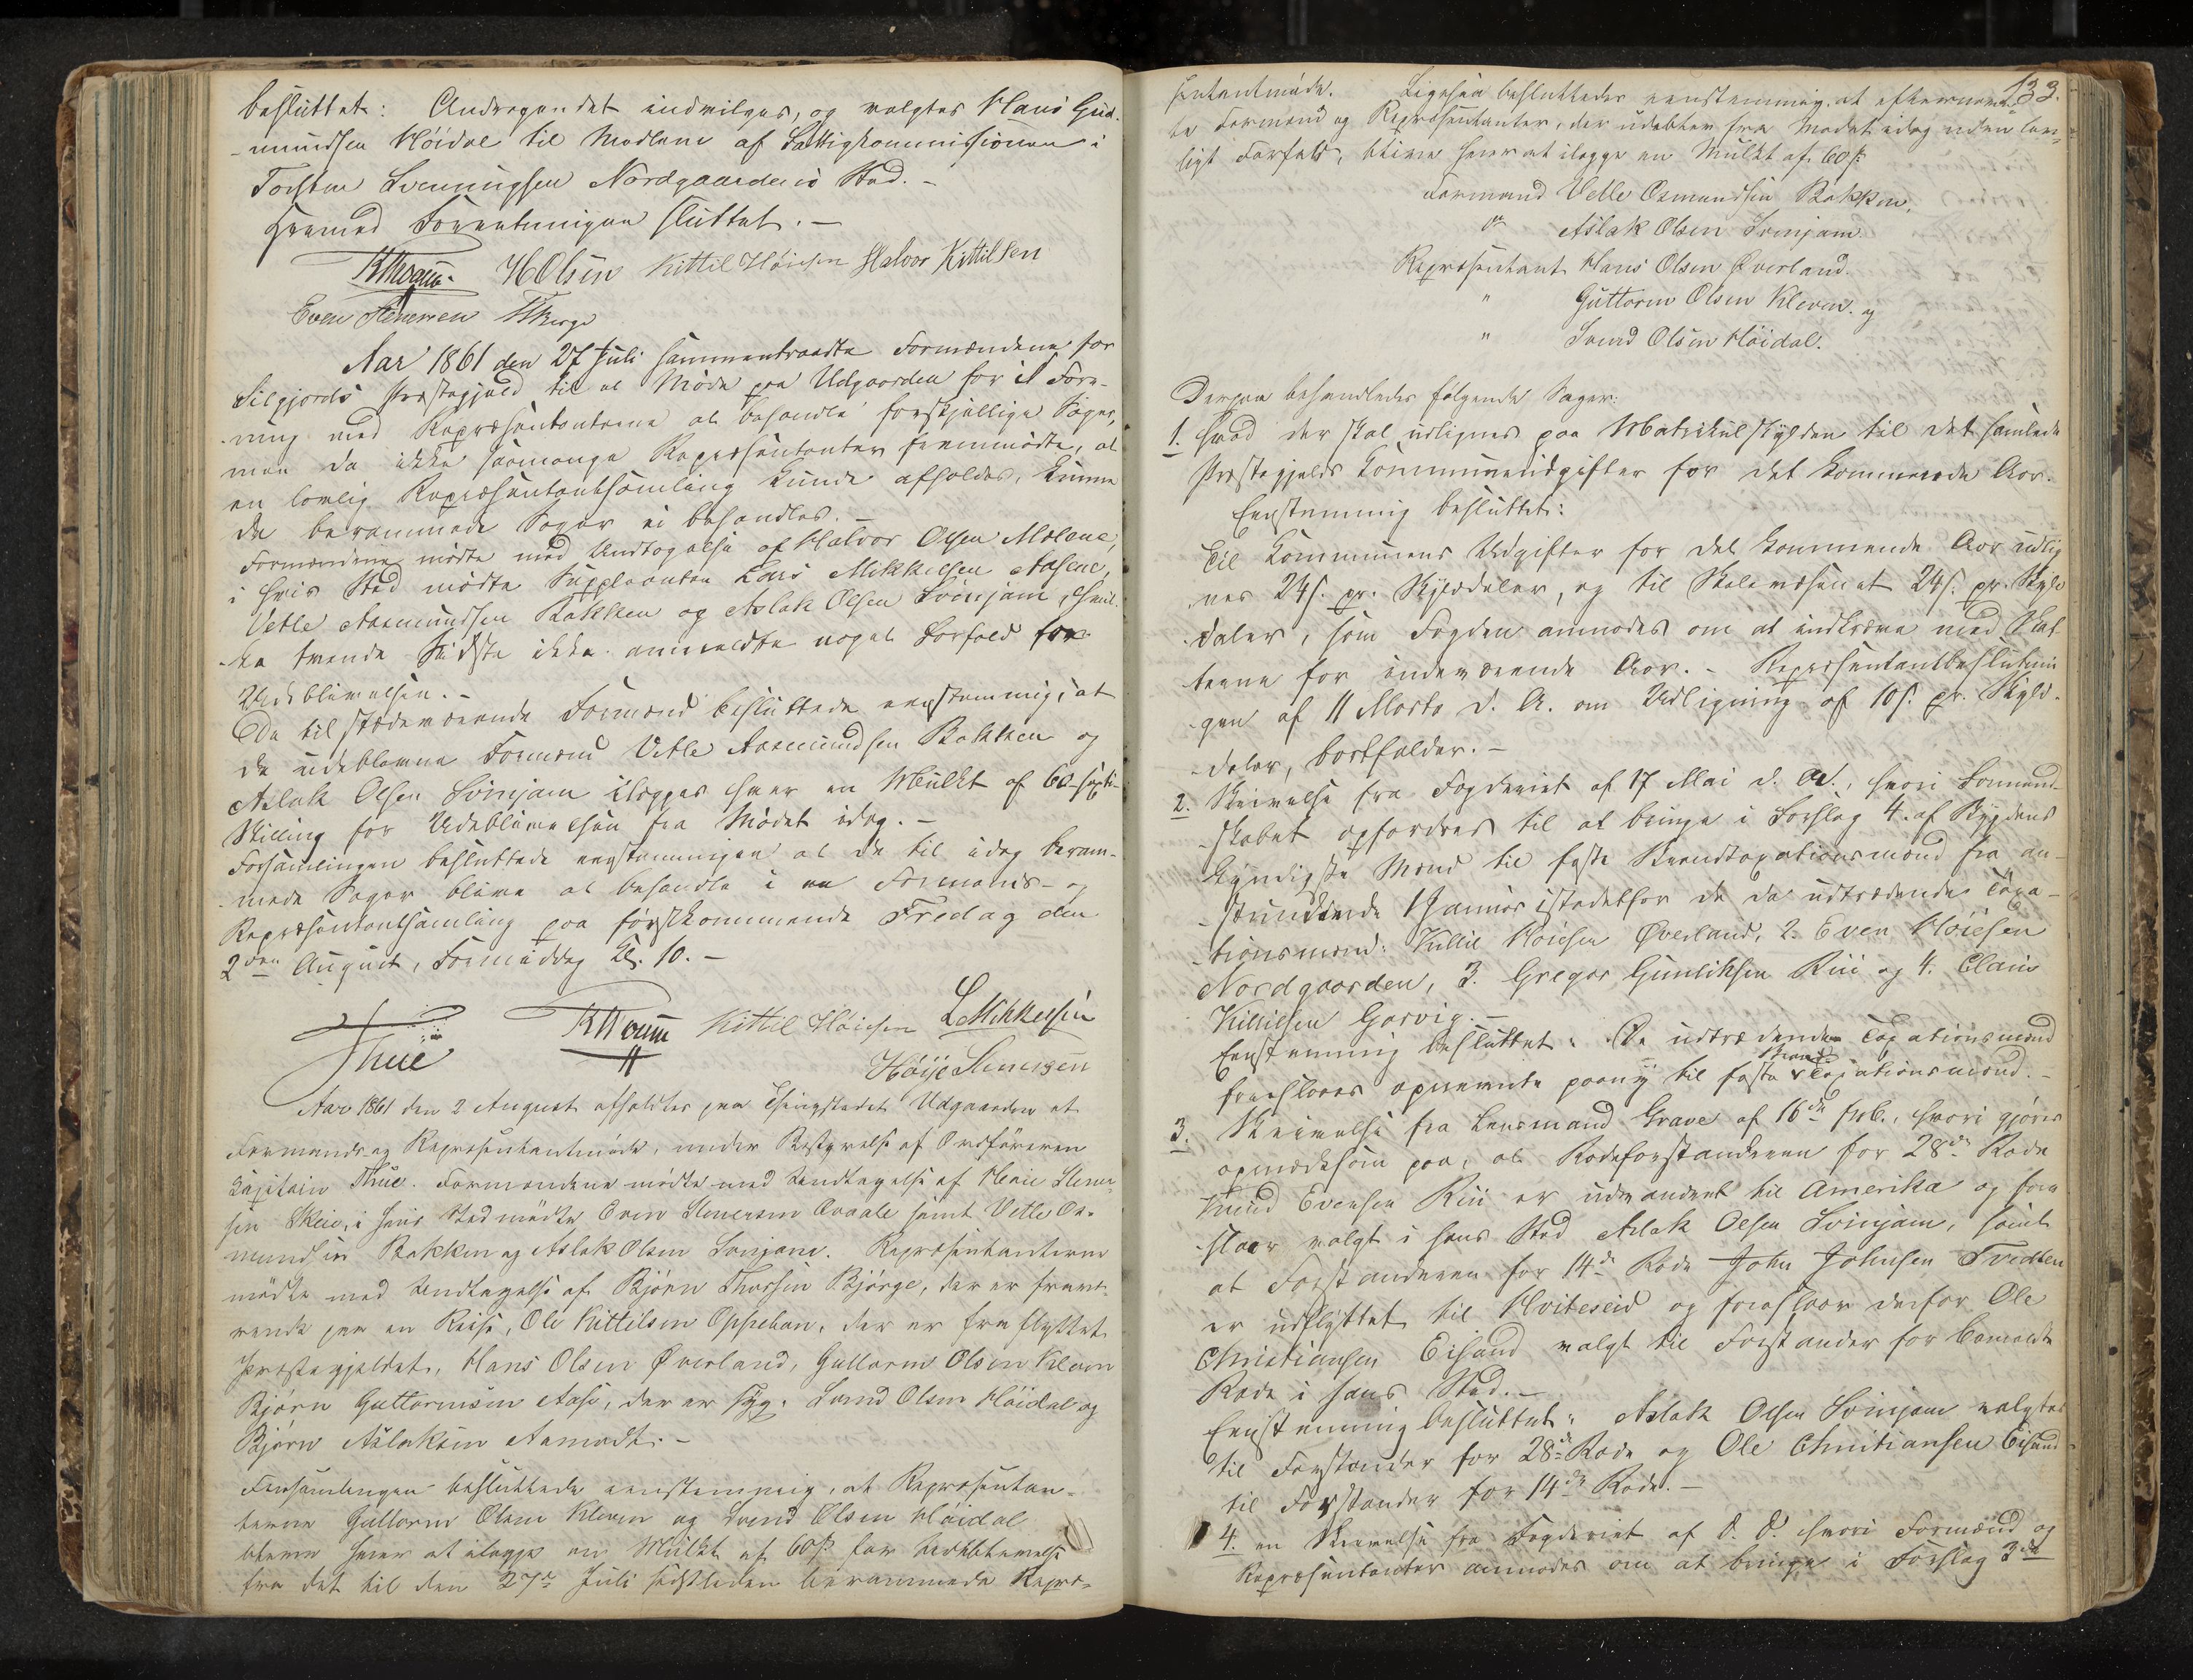 besluttet: Andragendet indvilges, og valgtes Hans Gud-
-mundsen Höidal til Medlem af Fattigkommissionen i
Torsten Svenningsen Nordgaardens Sted. -
Hermed Forretningen sluttet. -
HOlsen Kittil Höiesen Halvor Kittilsen
Even Stenersen
Aar 1861 den 27 Juli sammentraadte Formændene for
Silgjords Præstegjeld til et Möde paa Udgaarden for i Fore-
-ning med Repræsentanterne at behandle forskjellige Sager,
men da ikke saamange Repræsentanter fremmödte, at
en lovlig Repræsentantsamling kunde afholdes, kunne
de berammede Sager ei behandles. -
Formændene mödte med Undtagelse af Halvor Olsen Molane,
i hvis Sted mödte Suppleanten Lars Mikkelsen Aasene,
Vetle Aasmundsen Bakken og Aslak Olsen Svinjam, hvil-
-ke tvende Sidste ikke anmeldte noget Forfald for
Udeblivelsen. -
De tilstedeværende Formænd besluttede eenstemmig, at
de udeblevne Formænd Vetle Aasmundsen Bakken og
Aslak Olsen Svinjam ilægges hver en Mulkt af 60 sexti-
Skilling for Udeblivelsen fra Mödet idag. -
Forsamlingen besluttede eenstemmigen at de til idag beram-
-mede Sager blive at behandle i en Formands- og
Repræsentantsamling paa förstkommende Fredag den
2den August, Formiddag Kl. 10. -
Thue Kittil Höiesen LMikkelsen
Höije Stenersen
Aar 1861 den 2 August afholdtes paa Thingstedet Udgaarden et
Formands og Repræsentantmöde, under Bestyrelse af Ordföreren
Kapitain Thue. Formændene mödte med Undtagelse af Höie Stener-
sen Skeie, i hvis Sted mödte Even Stenersen Qvaale samt Vetle Os-
mundsen Bakken og Aslak Olsen Svinjam. Repræsentanterne
mödte med Undtagelse af Björn Thorsen Björge, der er fravæ-
rende paa en Reise, Ole Kittilsen Oppeban, der er fraflyttet
Præstegjeldet, Hans Olsen Øverland, Guttorm Olsen Kleven
Björn Guttormsen Aase, der er syg. Svend Olsen Höidal og
Björn Aslaksen Aamodt. -
Forsamlingen besluttede eenstemmig, at Repræsentan-
terne Guttorm Olsen Kleven og Svend Olsen Höidal
blive hver at ilægge en Mulkt af 60 s for Udeblivelse
fra det til den 27de Juli sidstleden berammede Repræ-
133.
sentantmöde. Ligesaa besluttedes eenstemmig, at efternævn-
te Formænd og Repræsentanter, der udebleve fra Mödet idag uden lov-
ligt Forfald, blive hver at ilægge en Mulkt af 60 s
Formand Vetle Osmundsen Bakken,
do Aslak Olsen Svinjam.
Repræsentant Hans Olsen Øverland.
" Guttorm Olsen Kleven. og
" Svend Olsen Höidal.
Derpaa behandledes fölgende Sager:
1. Hvad der skal udlignes paa Matrikulskylden til det samlede
Præstegjelds Kommuneudgifter for det kommende Aar.
Eenstemmig besluttet:
Til Kommunens Udgifter for det kommende Aar udlig
nes 24 s. pr. Skylddaler, og til Skolevæsenet 24 s. pr. Skyld
-daler, som Fogden anmodes om at indkræve med Skat-
-terne for indeværende Aar. - Repræsentantbeslutnin
-gen af 11 Marts d. A. om Udligning af 10 s. pr. Skyld-
-daler, bortfalder. -
2. Skrivelse fra Fogderiet af 17 Mai d. A., hvori Formand-
-skabet opfordres til at bringe i Forslag 4 af Bygdens
kyndigste Mænd til faste Branntaxationsmænd fra an-
-stundende 1 Januar istedetfor de da udtrædende Taxa-
-tionsmænd: Kittil Höiesen Øverland, 2. Even Höiesen
Nordgaarden, 3. Gregar Gunliksen Rui og 4. Clais
Kittilsen Garvig. -
Eenstemmig besluttet: De udtrædende Taxationsmænd
foreslaaes opnævnte paany til faste Brand Taxationsmænd. -
3. Skrivelse fra Lensmand Grave af 16de Feb., hvori gjöres
opmærksom paa, at Rodeforstanderen for 28de Rode
Knud Evensen Rui er udvandret til Amerika og fore
-slaaer valgt i hans Sted Aslak Olsen Svinjam, samt
at Forstanderen for 14de Rode John Johnsen Tvedten
er udflyttet til Hviteseid og foreslaaer derfor Ole
Christiansen Eisand valgt til Forstander for bemeldte
Rode i hans Sted. -
Eenstemmig besluttet: Aslak Olsen Svinjam valgtes
til Forstander for 28de Rode og Ole Christiansen Eisand
til Forstander for 14de Rode. -
4. en Skrivelse fra Fogderiet af d. D. hvori Formænd og
Repræsentanter anmodes om at bringe i Forslag 3de